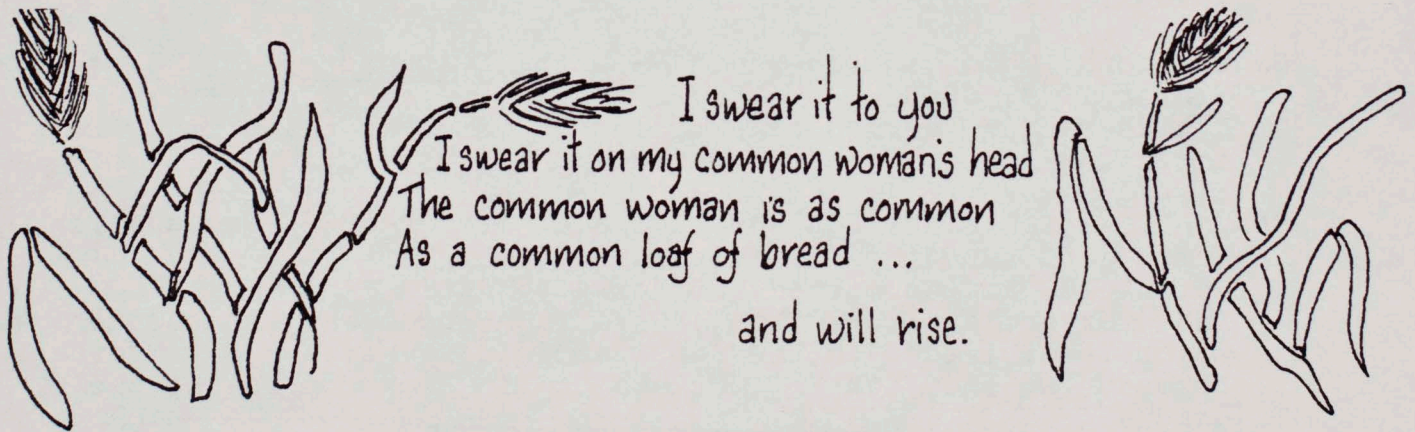 I swear it to you
I swear it on my common woman's head
The common woman is as common
As a common loaf of bread ...
and will rise.